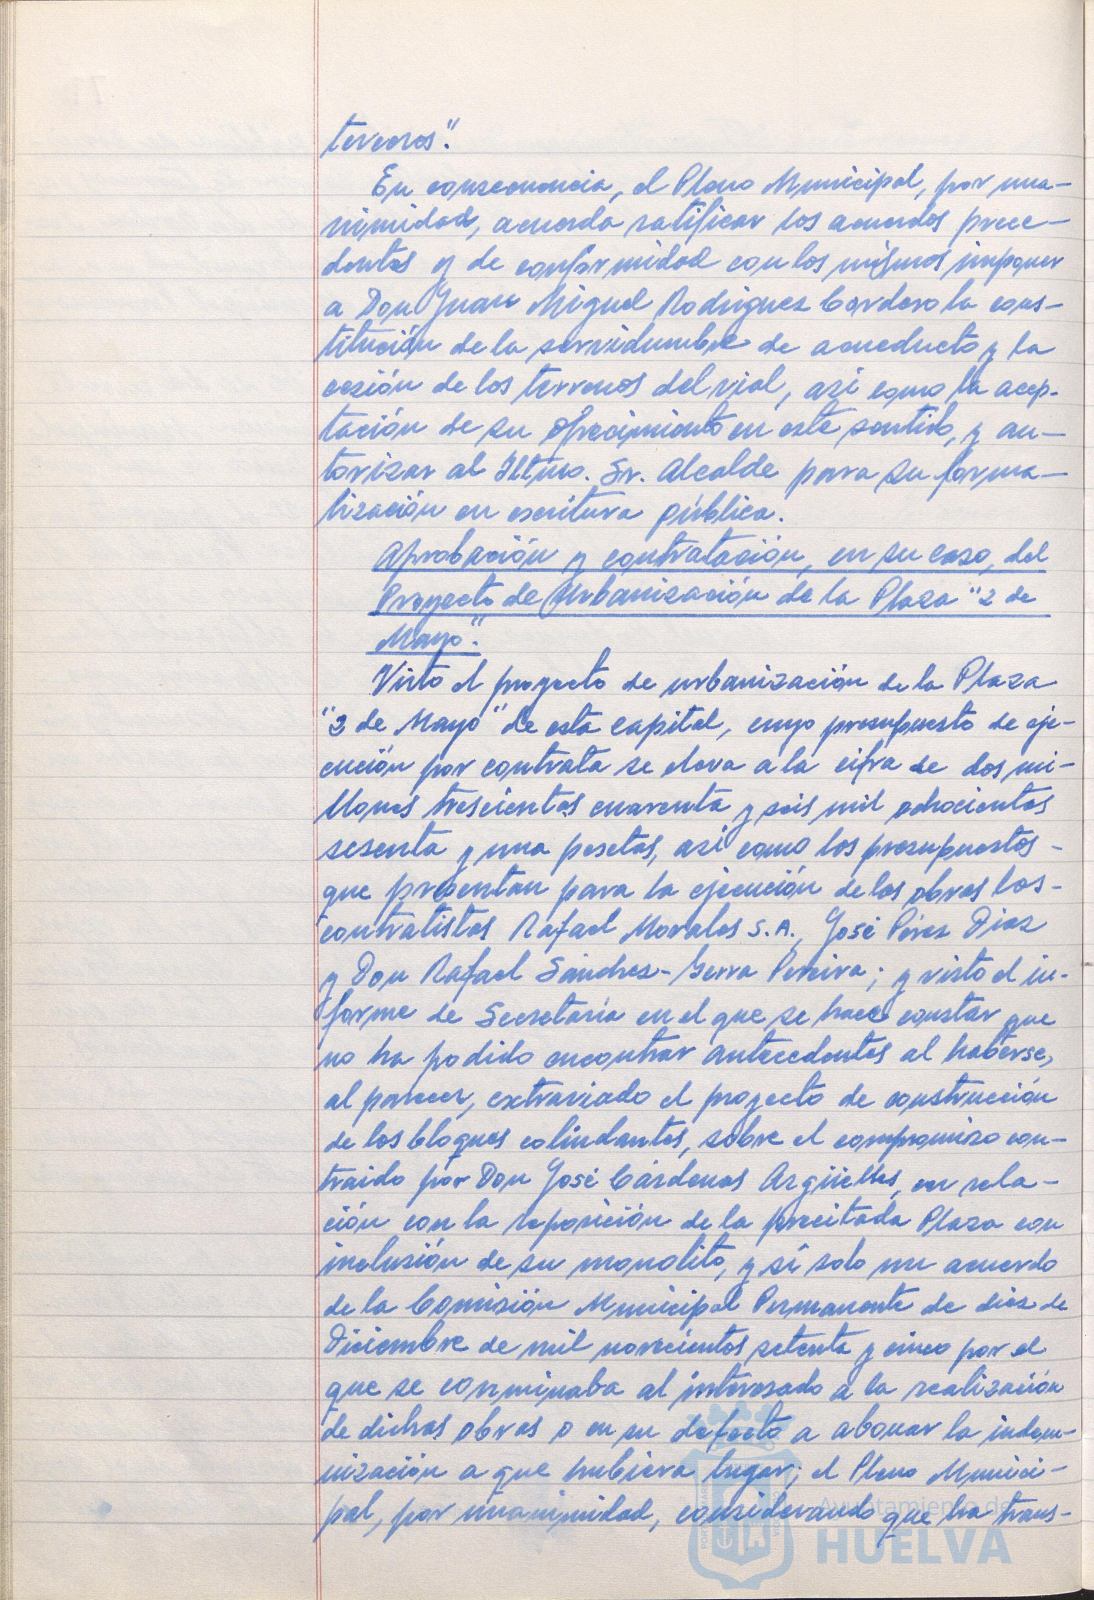 terceros".
En consecuencia, el Pleno Municipal, por una-
nimidad, acuerda ratificar los acuerdos prece-
dentes y de conformidad con los mismos imponer
a Don Juan Miguel Rodriguez Cordero la cons-
titución de la servidumbre de acueducto y la
cesión de los terrenos del vial, así como la acep-
tación de su ofrecimiento en este sentido, y au-
torizar al Iltmo. Sr. Alcalde para su forma-
lización en escritura pública.
Aprobación y contratación, en su caso, del
Proyecto de Urbanización de la Plaza "2 de
Mayo".
Visto el proyecto de urbanización de la Plaza
"2 de Mayo" de esta capital, cuyo presupuesto de eje-
cución por contrata se eleva a la cifra de dos mi-
llones trescientas cuarenta y seis mil ochocientas
sesenta y una pesetas, así como los presupuestos -
que presentan para la ejecución de las obras los-
contratistas Rafael Morales S.A., José Pérez Diaz
y Don Rafael Sánchez-Serra Pereira; y visto el in-
forme de Secretaría en el que se hace constar que
no ha podido encontrar antecedentes al haberse,
al parecer, extraviado el proyecto de construcción
de los bloques colindantes, sobre el compromiso con-
traido por Don José Cárdenas Argüelles, en rela-
ción con la reposición de la precitada Plaza con
inclusión de su monolito, y sí solo un acuerdo
de la Comisión Municipal Permanente de diez de
Diciembre de mil novecientos setenta y cinco por el
que se conminaba al interesado a la realización
de dichas obras o en su defecto a abonar la indem-
nización a que hubiera lugar; el Pleno Munici-
pal, por unanimidad, considerando que ha trans-
Ayuntamiento de
HUELVA